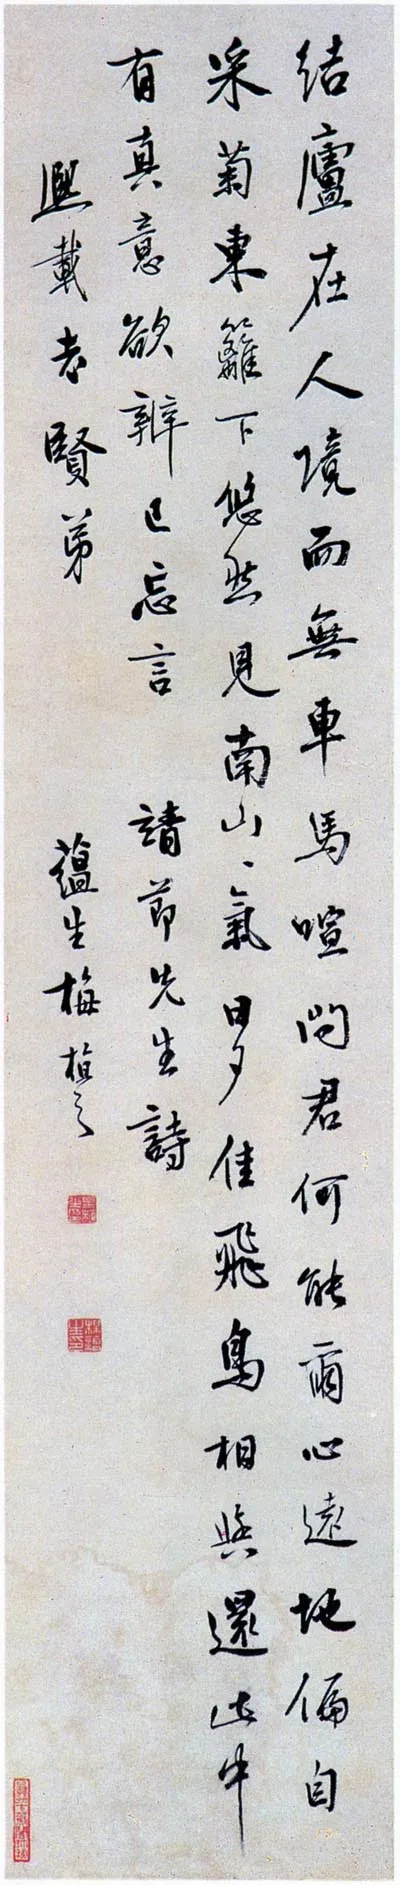 結廬在人境而無車馬喧問君何能爾心遠地偏自
采菊東籬下悠然見南山〻氣日夕佳飛鳥相與還此中
有真意欲辨已忘言　靖節先生詩
熙載老賢弟　蘊生梅植之